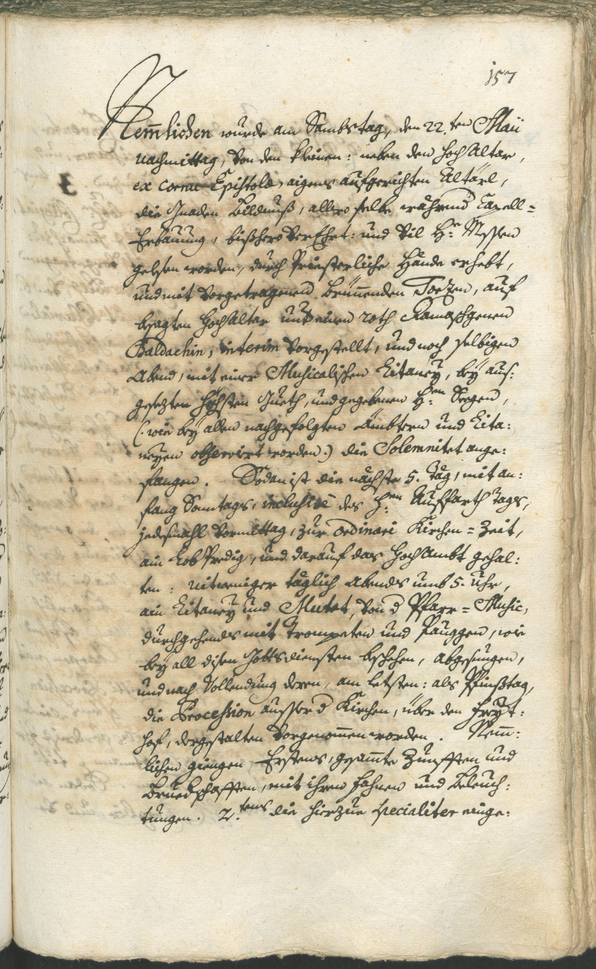 157
Nemlichen wurde am Sambstag, den 22.ten Maii
nachmittag, von dem kleinen: neben den Hoch Altar,
ex cornu Epistolæ, aigens aufgerichten Altärl,
die Gnaden Bildnuß, allwo selbe während Capell=
Erbauung, bißhero verEhret: und vil H: Messen
gelesen worden, durch Priesterliche Hände erhebt,
und mit vorgetragenen brünnenden Torzen, auf
besagten Hoch Altar unter einen roth Damaschgenen
Baldachin, interim vorgestellt, und noch selbigen
Abend, mit einer Musicalischen Litaney, bey auß:
gesetzten Höchsten Gueth, und gegebenen H:en Seegen,
(: wie bey allen nachgefolgten Ämbtern und Lita:
neyen observirt worden :) die Solemnitet ange:
fangen. Sodan ist die nächste 5. Täg, mit an:
fang Sontags, inclusivè des H:en Auffarth Tags,
jedesmahl Vormittag, zur ordinari Kirchen=Zeit,
ain Lob Predig, und darauf das Hoch Ambt gehal:
ten: nitweniger täglich Abends umb 5. Uhr,
ain Litaney und Mutet, von d Pfarr=Music,
durchgehends mit Trompeten und Pauggen, wie
bey all disen Gottsdiensten beschehen, abgesungen,
und nach Vollendung deren, am letsten: als Pfinstag,
die Procession ausser d Kirchen, über den Freyt:
hof, dergestalten vorgenommen worden. Nem:
lichen giengen, Erstens, gesammte Zünfften und
Bruedschafften, mit ihren Fahnen und Beleuch:
tungen. 2.tens die hierzue specialiter einge: